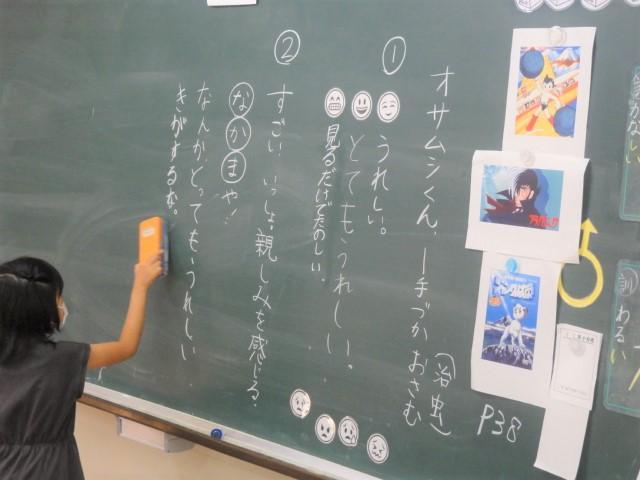 オサムシくん ー手づかおさむ
（治虫）
P38
①
うれしい。
とてもうれしい。
見るだけでたのしい。
②
すごい いっしょ。親しみを感じる。
なかまや！
なんか、とってもうれしい
きがするな。
訓
わるい